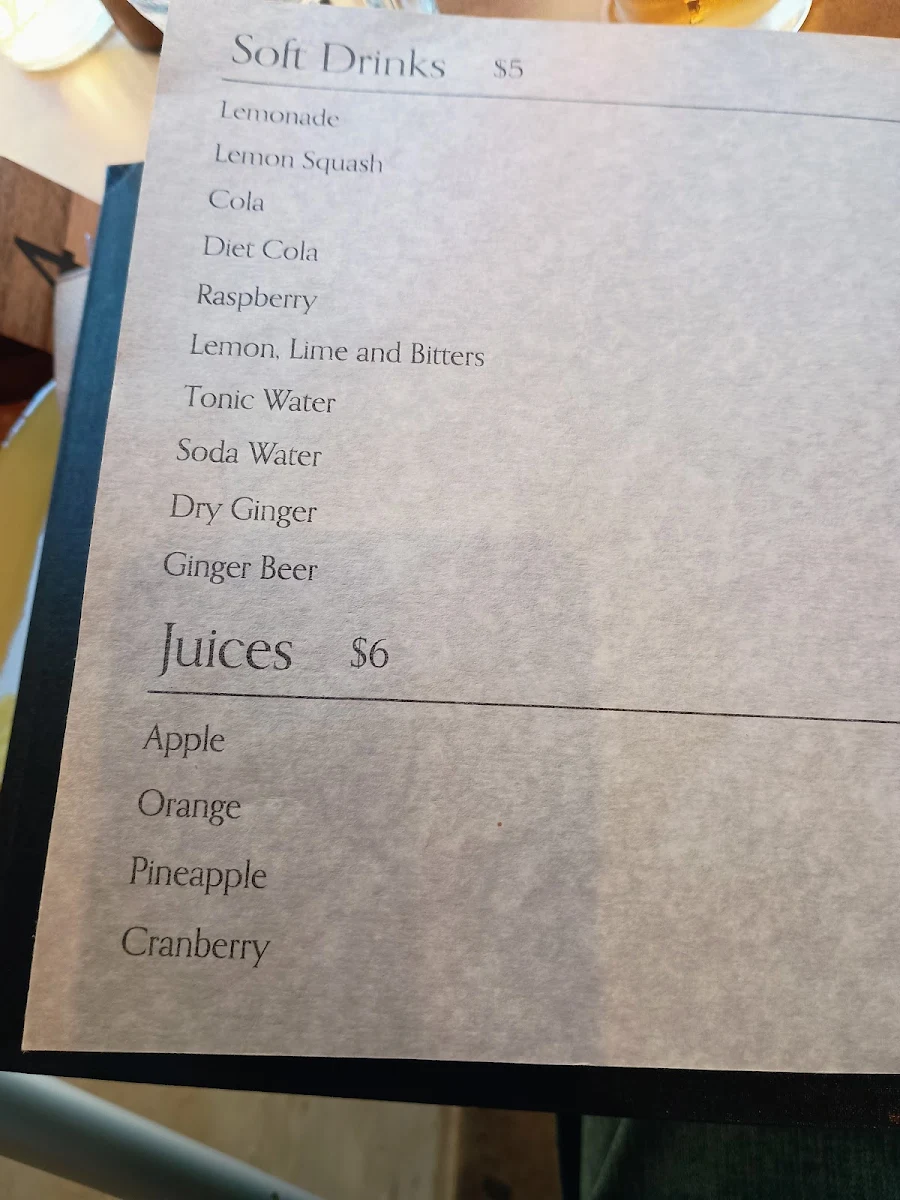 Soft Drinks $5
Lemonade
Lemon Squash
Cola
Diet Cola
Raspberry
Lemon, Lime and Bitters
Tonic Water
Soda Water
Dry Ginger
Ginger Beer
Juices $6
Apple
Orange
Pineapple
Cranberry
4